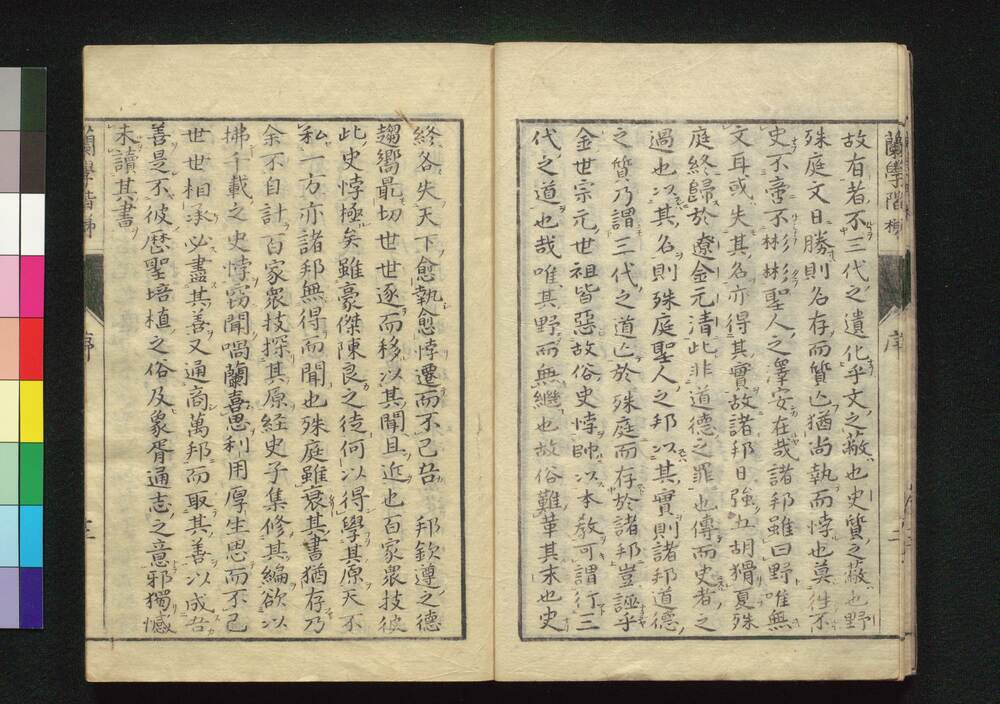 蘭學階梯
序
故有者不三代之遺化乎文之蔽也史質之蔽也野
殊庭文日勝則名存而質亡猶尚執而悖也莫往不
史不啻不彬彬聖人之澤安在哉諸邦雖曰野唯無
文耳或失其名亦得其實故諸邦日強五胡猾夏殊
庭終歸於遼金元清此非道德之罪也傳而史者之
過也以其名則殊庭聖人之邦以其實則諸邦道德
之質乃謂三代之道亡於殊庭而存於諸邦豈誣乎
金世宗元世祖皆惡故俗史悖帥以本教可謂行三
代之道也哉唯其野而無繼也故俗難革其末也史
終各失天下愈執愈悖遷而不已吾 邦欽遵之德
趨嚮最切世世逐而移以其聞且近也百家衆技彼
此史悖極矣雖豪傑陳良之徒何以得學其原天不
私一方亦諸邦無得而聞也殊庭雖衰其書猶存乃
余不自計百家衆技探其原経史子集修其編欲以
拂千載之史悖竊聞喎蘭喜思利用厚生思而不已
世世相承必盡其善又通商萬邦而取其善以成吾
善是不彼歴聖培植之俗及象胥通志之意邪獨憾
未讀其書
蘭學階梯
序
三